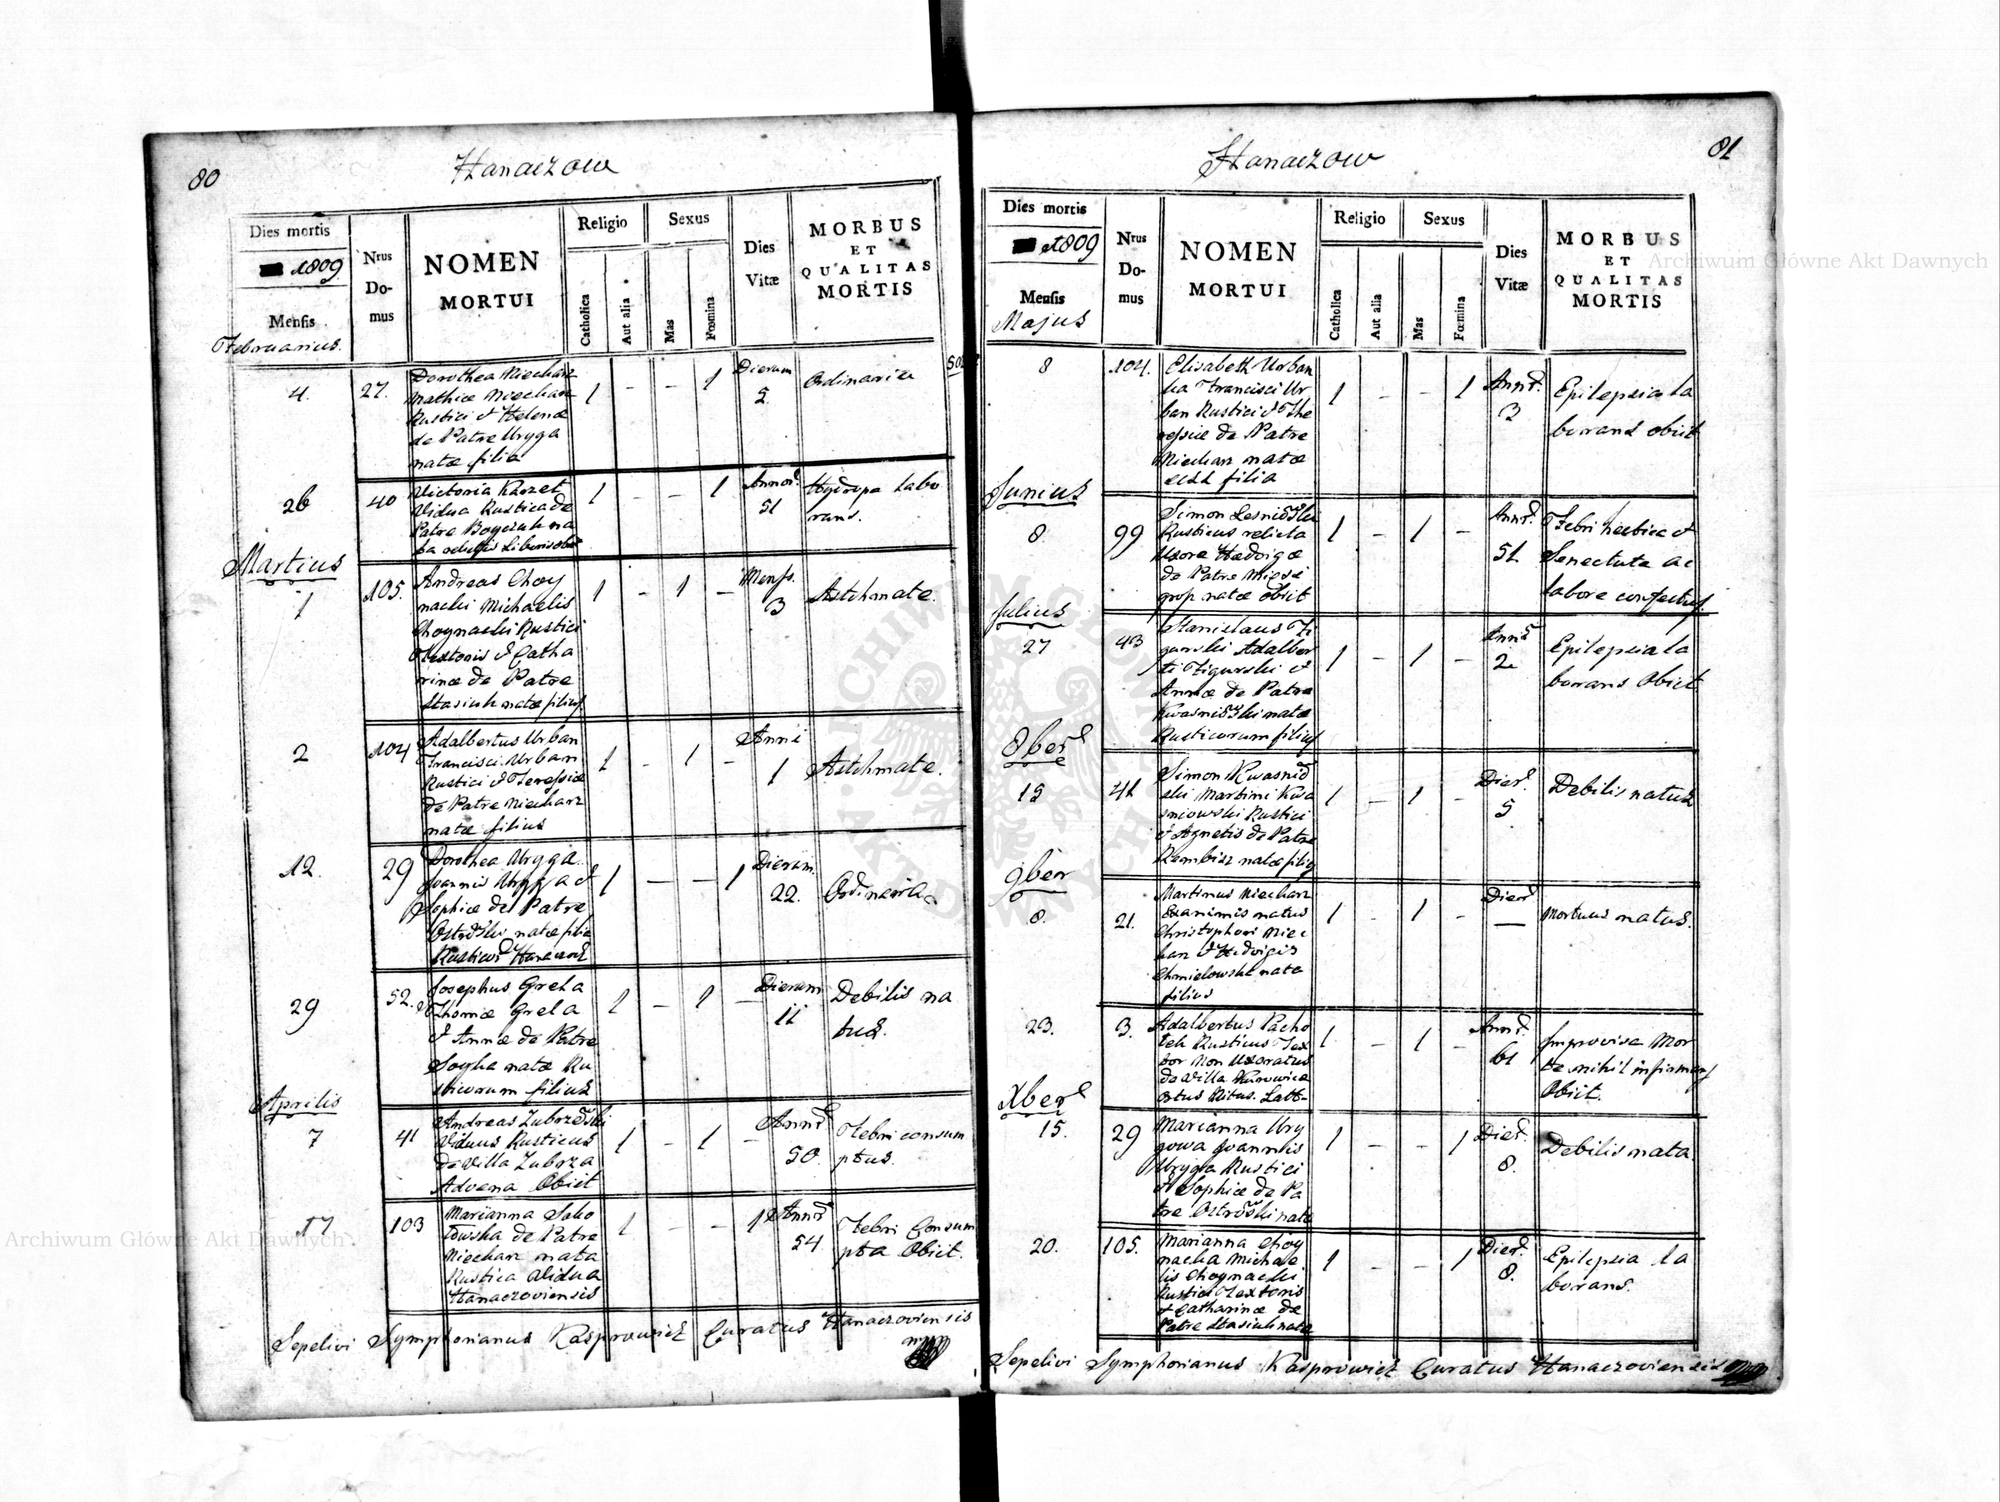 80
Hanaczow
Dies mortis
1809
Mensis
Februarius.
Nrus
Do-
mus
NOMEN
MORTUI
Religio
Catholica
Aut alia
Sexus
Mas
Fœmina
Dies
Vitæ
MORBUS
ET
QUALITAS
MORTIS
4.
27.
Dorothea Miecharz
Mathiæ Miecharz
Rustici et Helenæ
de Patre Uryga
natæ filia
1
-
-
1
Dierum
5.
Ordinaria
26
40
Victoria Karzet
Vidua Rustica de
Patre
1
-
-
1
Annor.
51
Hydropa labo
rans.
Martius
1
105.
Andreas Choy
nacki Michaelis
Choynacki Rustici
Textoris et Catha
rinæ de Patre
Stasiuk natæ filius
1
-
1
-
Mens.
3
Astchmate.
2
104
Adalbertus Urban
Francisci Urban
Rustici et Teressiæ
de Patre Miecharz
natæ filius
1
-
1
-
Anni
1
Astchmate.
12.
29
Dorothea Uryga
Joannis Uryga et
Sophiæ de Patre
Ostrowski natæ filia
1
-
-
1
Dierum
22.
Ordinaria
29
52.
Josephus Grela
Thomæ Grela
et Annæ de Patre
Soyka natæ Ru
sticorum filius
1
-
1
-
Dierum
11
Debilis na
tus.
Aprilis
7
41
Andreas Zubrzowski
Viduus Rusticus
de Villa Zubrza
Advena Obiit
1
-
1
-
Annor.
50.
Febri consum
ptus.
17
103
Marianna Sako
towska de Patre
Miechar nata
Rustica Vidua
Hanaczoviensis
1
-
-
1
Annor
54
Febri Consum
pta Obiit.
Sepelivi Symphorianus Kasprowicz Curatus Hanaczoviensis
81
Hanaczow
Dies mortis
1809
Mensis
Majus
Nrus
Do-
mus
NOMEN
MORTUI
Religio
Catholica
Aut alia
Sexus
Mas
Fœmina
Dies
Vitæ
MORBUS
ET
QUALITAS
MORTIS
8
104.
Elisabeth Urban
ka Francisci Ur
ban Rustici et The
ressiæ de Patre
Miecharz natæ
filia
1
-
-
1
Annor.
3
Epilepsia la
borans obiit
Junius
8
99
Simon Lesniowski
Rusticus relicta
Uxore Hedvigæ
de Patre
natæ obiit
1
-
1
-
Annor.
51
Febri hectica et
Senectute ac
labore confectus
Julius
27
43
Stanislaus Fi
gurski Adalber
ti Figurski et
Annæ de Patre
Kwasniowski natæ
Rusticorum filius
1
-
1
-
Annor
2
Epilepsia la
borans Obiit
8ber
15
41
Simon Kwasniow
ski Martini Kwa
sniowski Rustici
et Agnetis de Patre
Rembisz natæ filius
1
-
1
-
Dier.
5
Debilis natus
9ber
8.
21.
Martinus Miecharz
Exanimis natus
Christophori Mie
har et Hedvigis
Chmielowska nata
filius
1
-
1
-
Dier
—
Mortuus natus.
23.
3.
Adalbertus Pacho
lek Rusticus Tex
tor Non Uxoratus
de Villa Kurowice
ortus Ritus Latt-
1
-
1
-
Annor.
61
Improvisa Mor
te nihil infirmus
Obiit.
Xber
15.
29
Marianna Ury
gowa Joannis
Uryga Rustici
et Sophiæ de Pa
tre Ostrowski nata
1
-
-
1
Dier.
8.
Debilis nata
20.
105.
Marianna Choy
nacka Michae
lis Choynacki
Rustici Textoris
et Catharinæ de
Patre Stasiuk nata
1
-
-
1
Dier.
8.
Epilepsia la
borans.
Sepelivi Symphorianus Kasprowicz Curatus Hanaczoviensis
Archiwum Główne Akt Dawnych
Archiwum Główne Akt Dawnych
ARCHIWUM GŁÓWNE AKT DAWNYCH